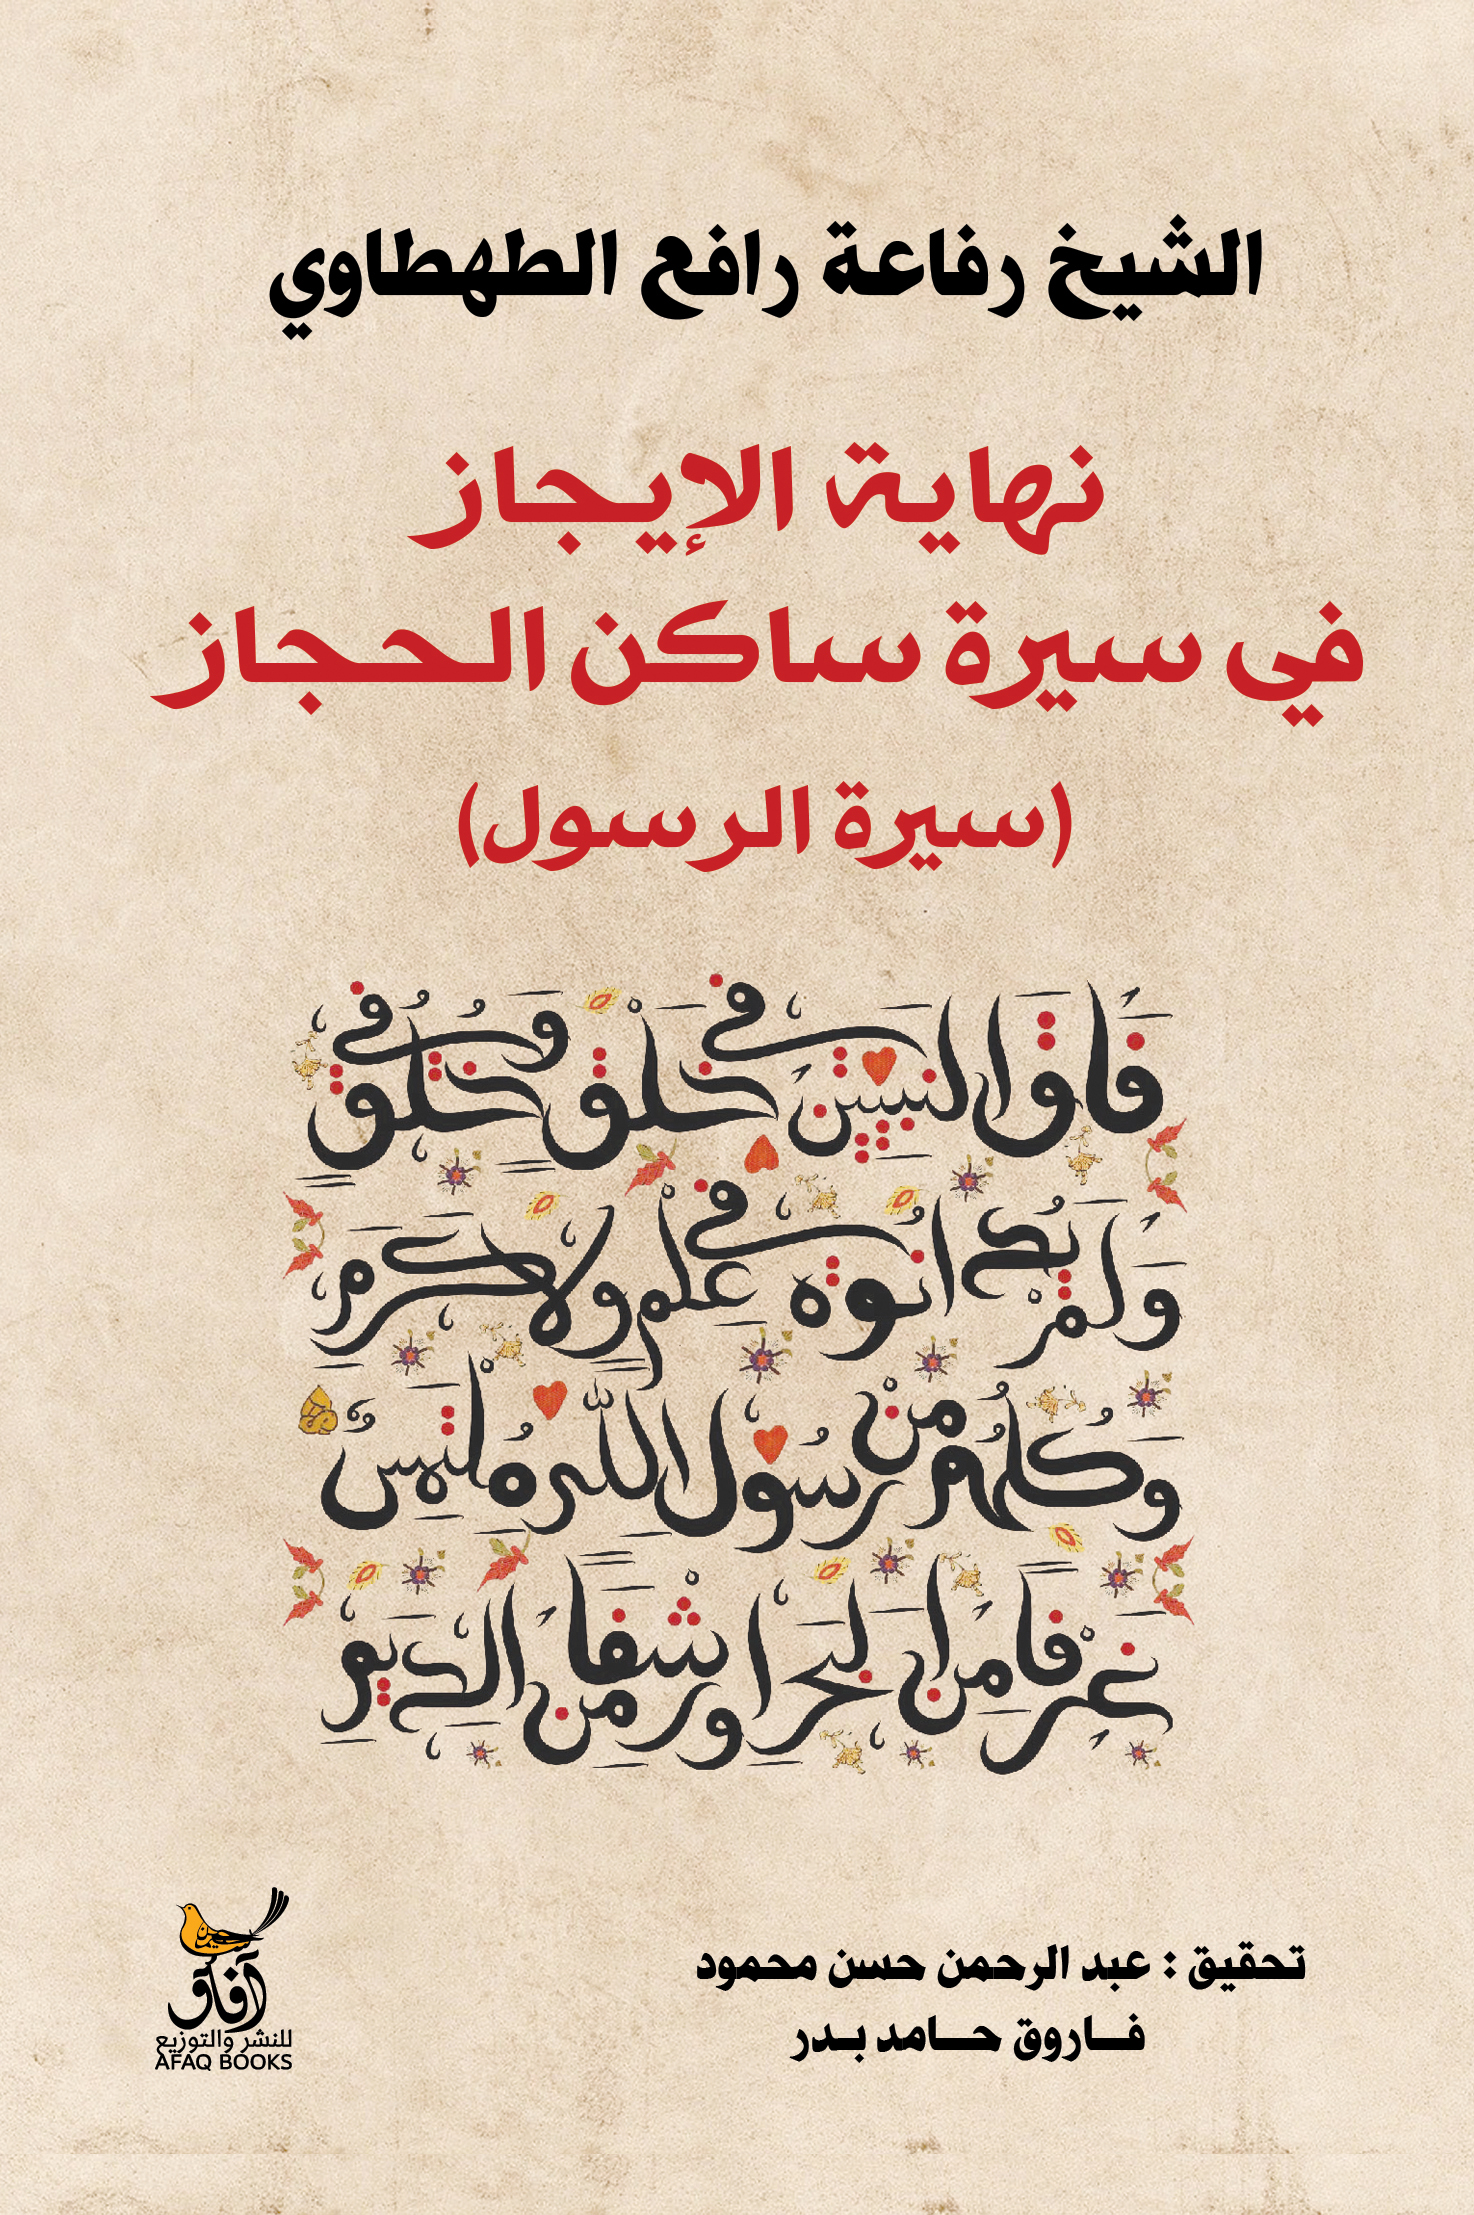 الشيخ رفاعة رافع الطهطاوي
نهاية الإيجاز
في سيرة ساكن الحجاز
(سيرة الرسول)
فَاقَ النَّبِيّينَ في خَلْقٍ وَفي خُلُقٍ
وَلَمْ يُدَانُوهُ في عِلْمٍ وَلا كَرَمِ
وَكُلُّهُم مِنْ رَسُولِ اللهِ مُلْتَمِسٌ
غَرْفًا مِنَ البَحْرِ اوْ رَشْفًا مِنَ الدِّيَمِ
تحقيق : عبد الرحمن حسن محمود
فاروق حامد بدر
آفاق
للنشر والتوزيع
AFAQ BOOKS